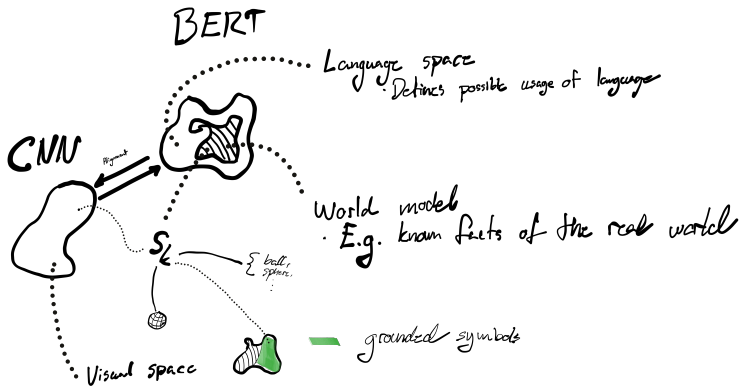 BERT
Language space
· Defines possible usage of language
CNN
Alignment
World model
· E.g. known facts of the real world
{ ball,
sphere,
:
Visual space
grounded symbols